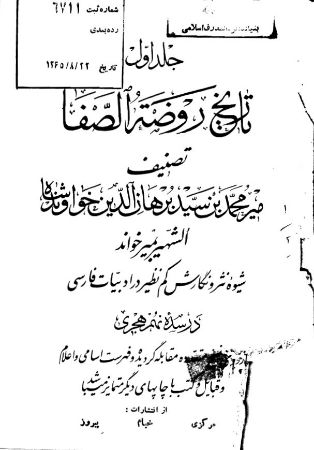 شماره ثبت ۶۷۱۱
رده بندی
تاریخ ۱۳۶۵/۸/۲۲
اسلامی
جلد اول
تاریخ روضة الصفا
تصنیف
میر محمد بن سید برهان الدین خواوند شاه
الشهیر بمیر خواند
شیوه نثر و نگارش کم نظیر در ادبیات فارسی
در سده نهم هجری
مقابله گردیده و فهرست اسامی و اعلام
و قبایل و کتب با چاپهای دیگر متمایز میباشد
از انتشارات :
مرکزی خیام پیروز